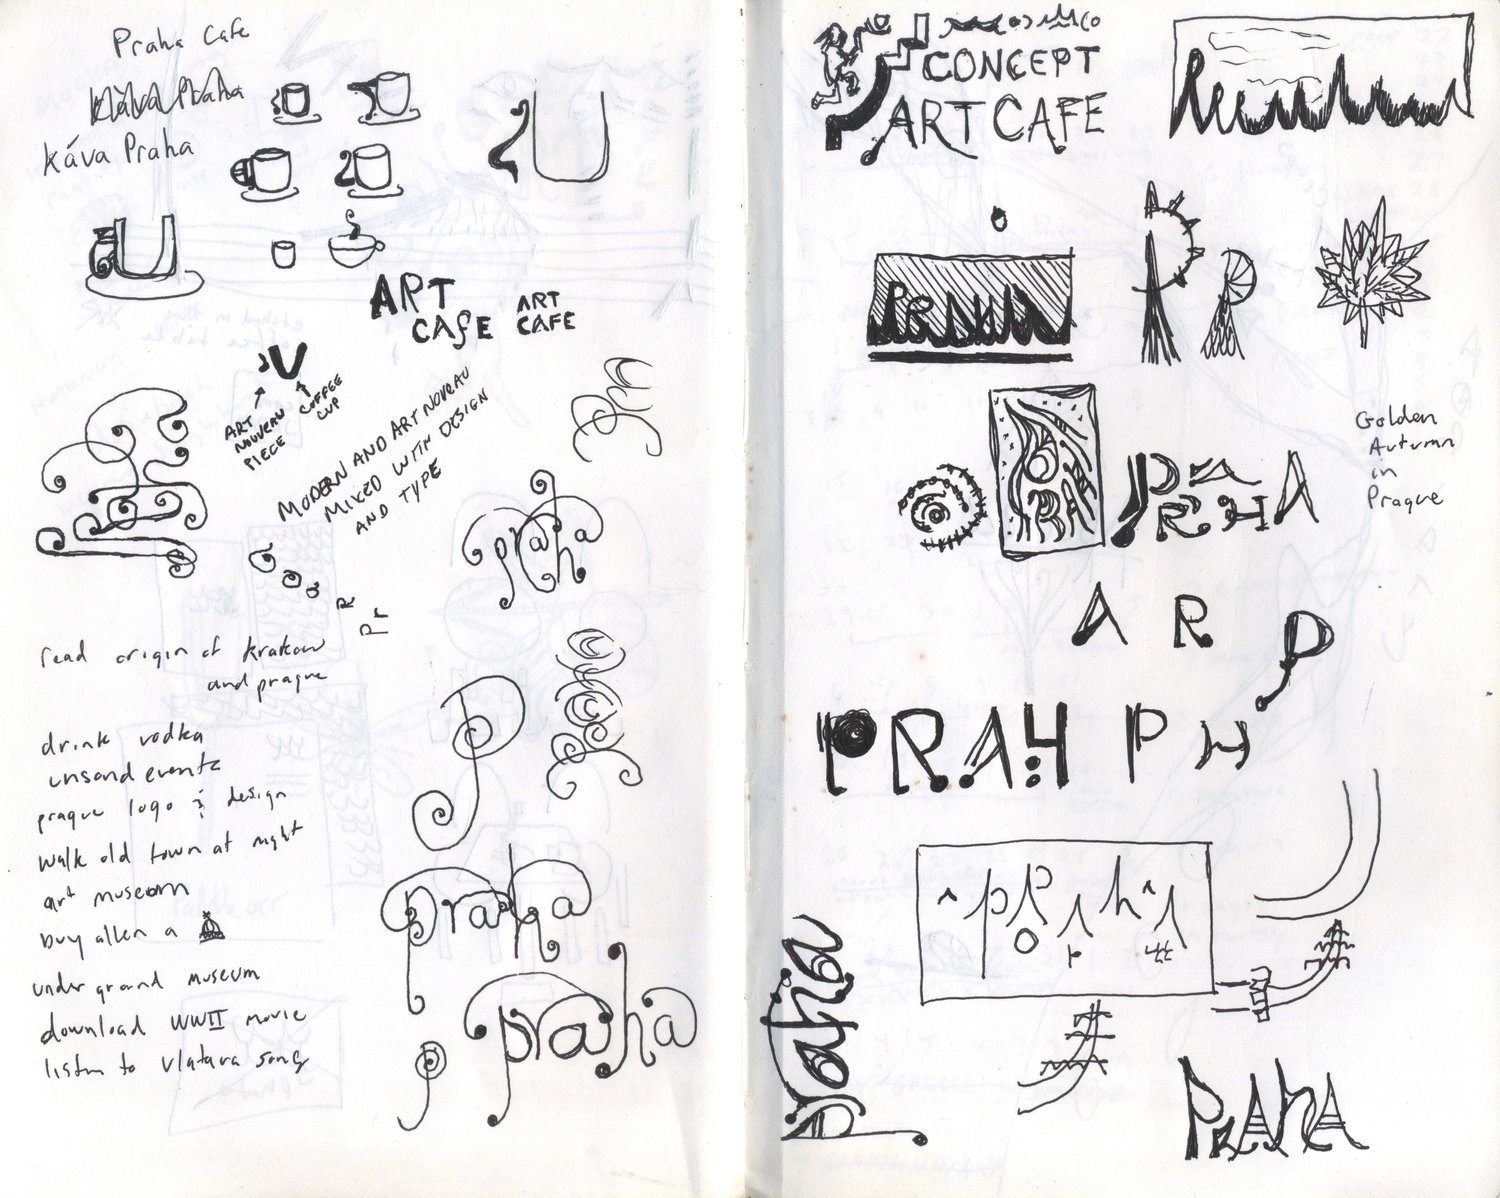 Praha Cafe
Káva Praha
káva Praha
ART
CAFE
ART
CAFE
ART
NOUVEAU
PIECE
COFFEE
CUP
MODERN AND ART NOVEAU
MIXED WITH DESIGN
AND TYPE
praha
R
Pr
read origin of krakow
and prague
drink vodka
prague logo & design
walk old town at night
art museum
buy allen a
under ground museum
download WWII movie
listen to vlatava song
P
praha
praha
CONCEPT
ART CAFE
P P
Golden
Autumn
in
Prague
PRAHA
A R P
PRAH P H
praha
PRAHA